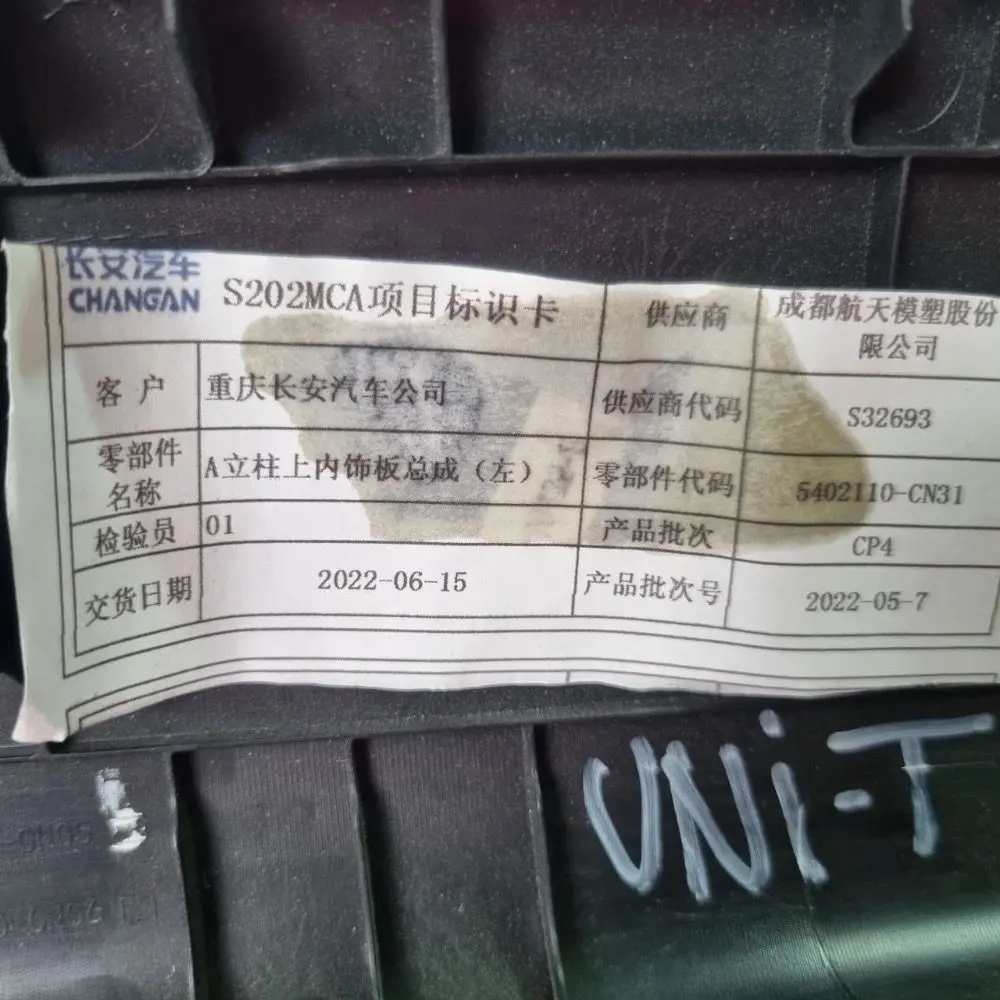 长安汽车
CHANGAN
S202MCA项目标识卡
供应商
成都航天模塑股份
限公司
客 户
重庆长安汽车公司
供应商代码
S32693
零部件
名称
A立柱上内饰板总成（左）
零部件代码
5402110-CN31
检验员
01
产品批次
CP4
交货日期
2022-06-15
产品批次号
2022-05-7
UNi-T